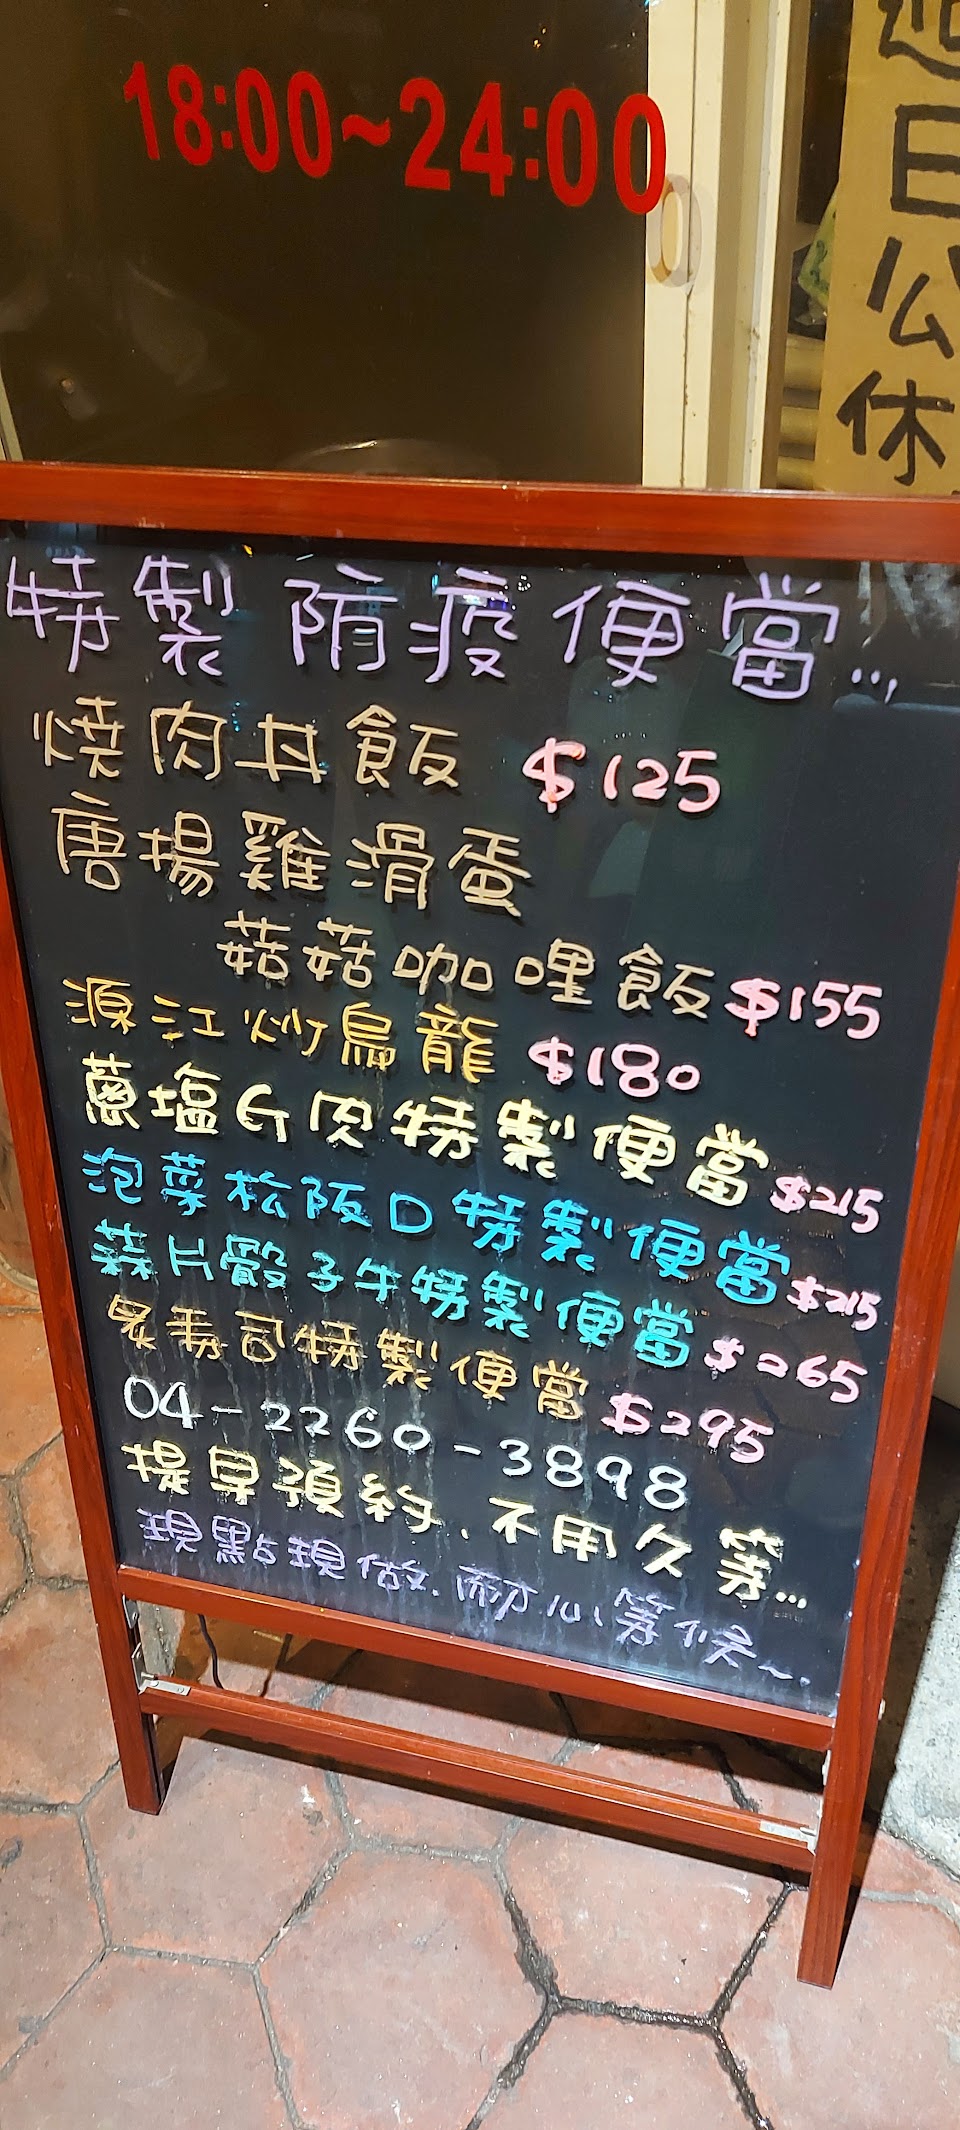 18:00~24:00
日公休
特製防疫便當...
燒肉丼飯 $125
唐揚雞滑蛋
菇菇咖哩飯 $155
源江炒烏龍 $180
蔥塩G肉特製便當 $215
泡菜松阪口特製便當 $215
蒜片骰子牛特製便當 $265
炙壽司特製便當 $295
04-2260-3898
提早預約.不用久等...
現點現做.耐心等候~.